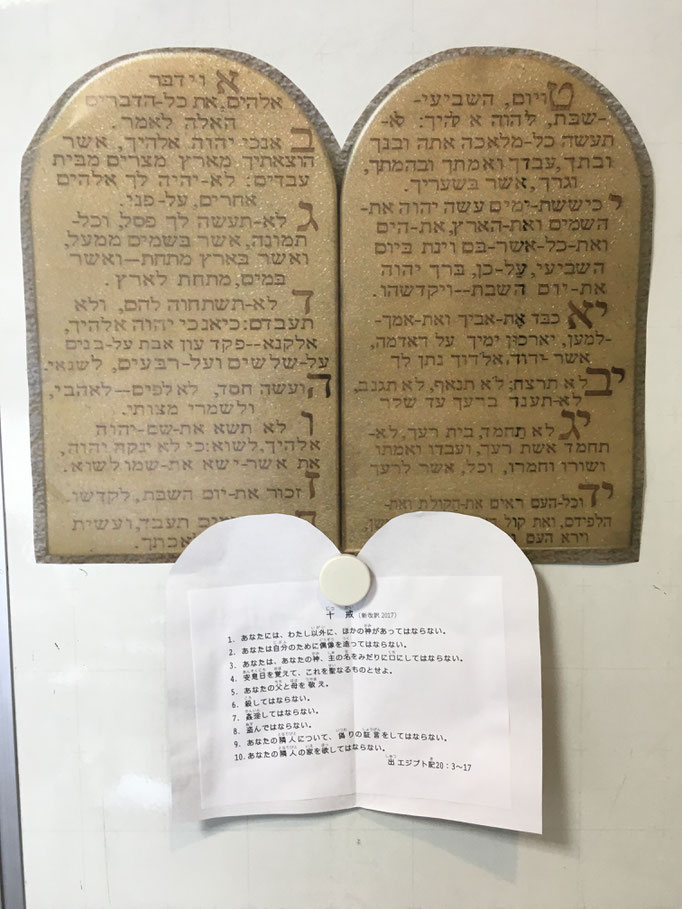 א וידבר
אלהים, את כל-הדברים
האלה לאמר.
ב אנכי יהוה אלהיך, אשר
הוצאתיך מארץ מצרים מבית
עבדים: לא-יהיה לך אלהים
אחרים, על-פני.
ג לא-תעשה לך פסל, וכל-
תמונה, אשר בשמים ממעל,
ואשר בארץ מתחת--ואשר
במים, מתחת לארץ.
ד לא-תשתחוה להם, ולא
תעבדם: כי אנכי יהוה אלהיך,
אל קנא--פקד עון אבת על-בנים
על-שלשים ועל-רבעים, לשנאי.
ה ועשה חסד, לאלפים--לאהבי,
ולשמרי מצותי.
ו לא תשא את-שם-יהוה
אלהיך, לשוא: כי לא ינקה יהוה,
את אשר-ישא את-שמו לשוא.
ז זכור את-יום השבת, לקדשו.
תעבד, ועשית
ט ויום, השביעי-
-שבת, ליהוה אלהיך: לא-
תעשה כל-מלאכה אתה ובנך
ובתך, עבדך ואמתך ובהמתך,
וגרך, אשר בשעריך.
י כי ששת-ימים עשה יהוה את-
השמים ואת-הארץ, את-הים
ואת-כל-אשר-בם וינח ביום
השביעי, על-כן, ברך יהוה
את-יום השבת--ויקדשהו.
יא כבד את-אביך ואת-אמך-
-למען, יארכון ימיך על האדמה,
אשר-יהוה אלהיך נתן לך
יב לא תרצח: לא תנאף, לא תגנב,
לא-תענה ברעך עד שקר
יג לא תחמד, בית רעך, לא-
תחמד אשת רעך, ועבדו ואמתו
ושורו וחמרו, וכל, אשר לרעך
יד וכל-העם ראים את-הקולת ואת-
הלפידם, ואת קול
וירא העם
十戒 (新改訳 2017)
1. あなたには、わたし以外に、ほかの神があってはならない。
2. あなたは自分のために偶像を造ってはならない。
3. あなたは、あなたの神、主の名をみだりに口にしてはならない。
4. 安息日を覚えて、これを聖なるものとせよ。
5. あなたの父と母を敬え。
6. 殺してはならない。
7. 姦淫してはならない。
8. 盗んではならない。
9. あなたの隣人について、偽りの証言をしてはならない。
10. あなたの隣人の家を欲してはならない。
出エジプト記20：3～17